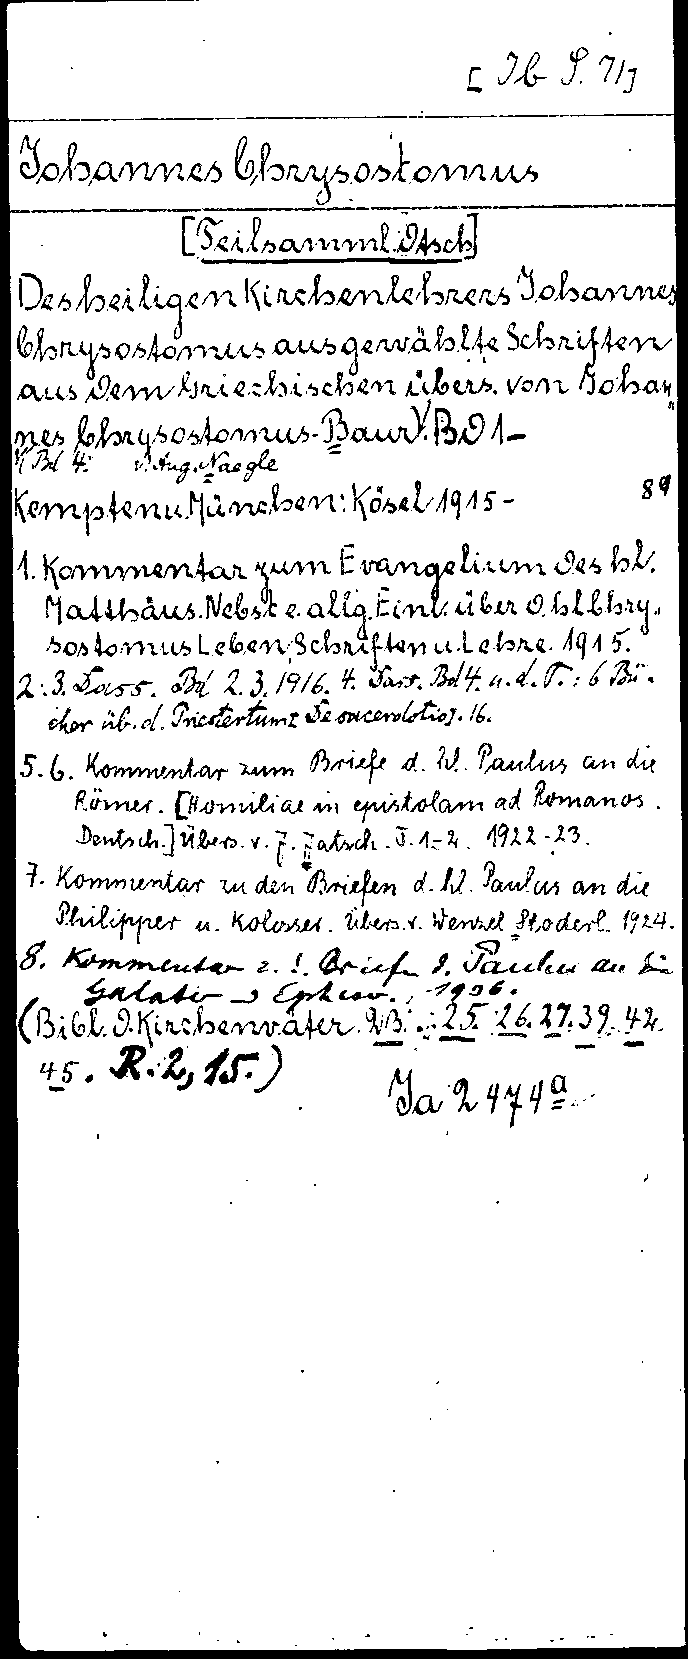 [Ib S. 71]
Johannes Chrysostomus
[Teilsamml. dtsch]
Des heiligen Kirchenlehrers Johannes
Chrysostomus ausgewählte Schriften
aus dem Griechischen übers. von Johan"
nes Chrysostomus Baur). Bd 1-
)(Bd 4: v. Aug. Naegle
Kempten u. München: Kösel 1915- 8°
1. Kommentar zum Evangelium des hl.
Matthäus. Nebst e. allg. Einl. über d. hl. Chry"
sostomus Leben, Schriften u. Lehre. 1915.
2. 3. Dass. Bd 2. 3. 1916. 4. Dass. Bd 4. u. d. T.: 6 Bü-
cher üb. d. Priestertum [De sacerdotio]. 16.
5. 6. Kommentar zum Briefe d. hl. Paulus an die
Römer. [Homiliae in epistolam ad Romanos.
Deutsch.] Übers. v. J. Jatsch. T. 1-2. 1922-23.
7. Kommentar zu den Briefen d. hl. Paulus an die
Philipper u. Kolosser. Übers. v. Wenzel Stoderl. 1924.
8. Kommentar z. d. Briefen d. Paulus an die
Galater u. Epheser. 1936.
(Bibl. d. Kirchenväter. 23. 25. 26. 27. 39. 42.
45. R. 2, 15.)
Ja 2474a